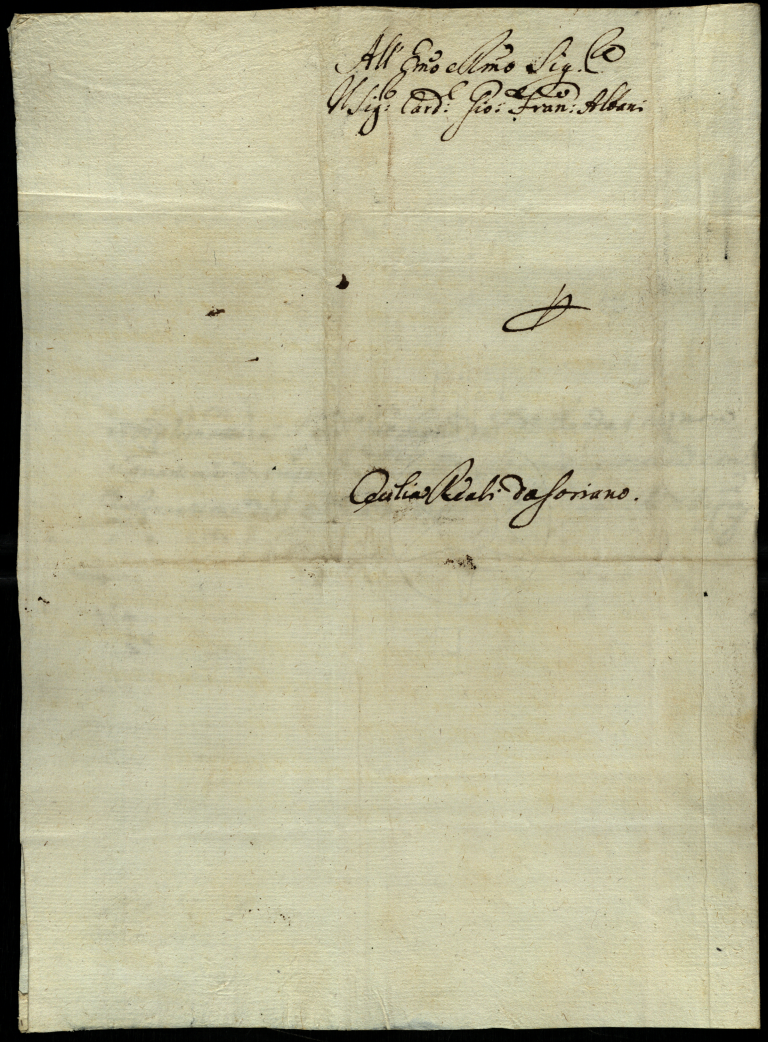 All' Emo e Rmo Sig.re
Il Sig.e Card.l Gio: Fran.co Albani
Cecilia Reali da Soriano.